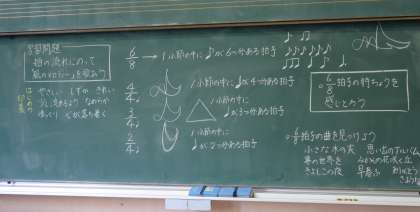 学習問題
拍の流れにのって
歌のメロディーを歌おう
はじめの
やさしい しずか きれい
流れるよう なめらか
ゆっくり 心が落ち着く
6/8 → 1小節の中に♪が6つ分ある拍子
4/4 1小節の中に♩が4つ分ある拍子
3/4 1小節の中に
♩が3つ分ある拍子
2/4 1小節の中に
♩が2つ分ある拍子
6/8拍子の特ちょうを
感じとろう
6/8拍子の曲を見つけよう
小さな木の実 思い出のアルバム
夢の世界を みかんの花咲く丘
きよしこの夜 早春ふ